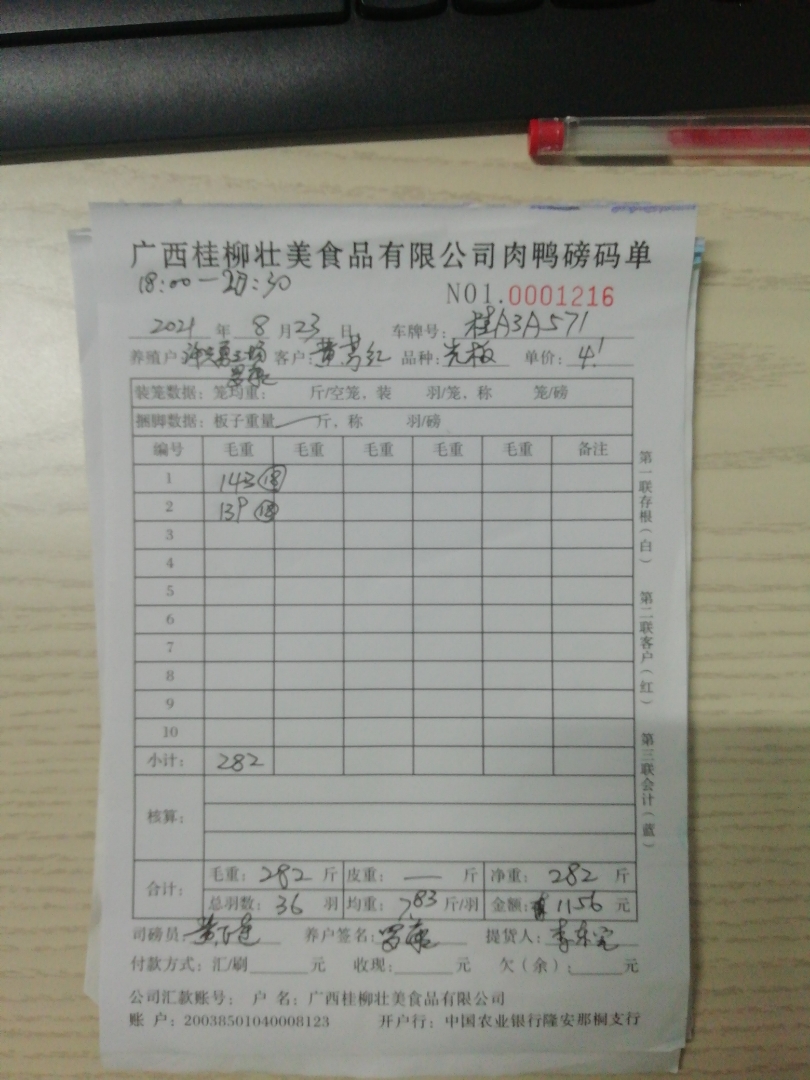 广西桂柳壮美食品有限公司肉鸭磅码单
18:00—20:30
NO1.0001216
2021 年 8 月 23 日 车牌号: 桂A3A571
养殖户 客户: 黄 红 品种: 光板 单价: 4.1
装笼数据: 笼均重: 斤/空笼, 装 羽/笼, 称 笼/磅
捆脚数据: 板子重量 — 斤, 称 羽/磅
编号 毛重 毛重 毛重 毛重 毛重 备注
1 143 18
2 139 18
3
4
5
6
7
8
9
10
小计: 282
核算:
合计: 毛重: 282 斤 皮重: — 斤 净重: 282 斤
总羽数: 36 羽 均重: 7.83 斤/羽 金额: 1156 元
司磅员: 黄 养户签名: 罗康 提货人: 李东
付款方式: 汇/刷 元 收现: 元 欠(余): 元
公司汇款账号: 户 名: 广西桂柳壮美食品有限公司
账 户: 20038501040008123 开户行: 中国农业银行隆安那桐支行
第一联存根(白) 第二联客户(红) 第三联会计(蓝)